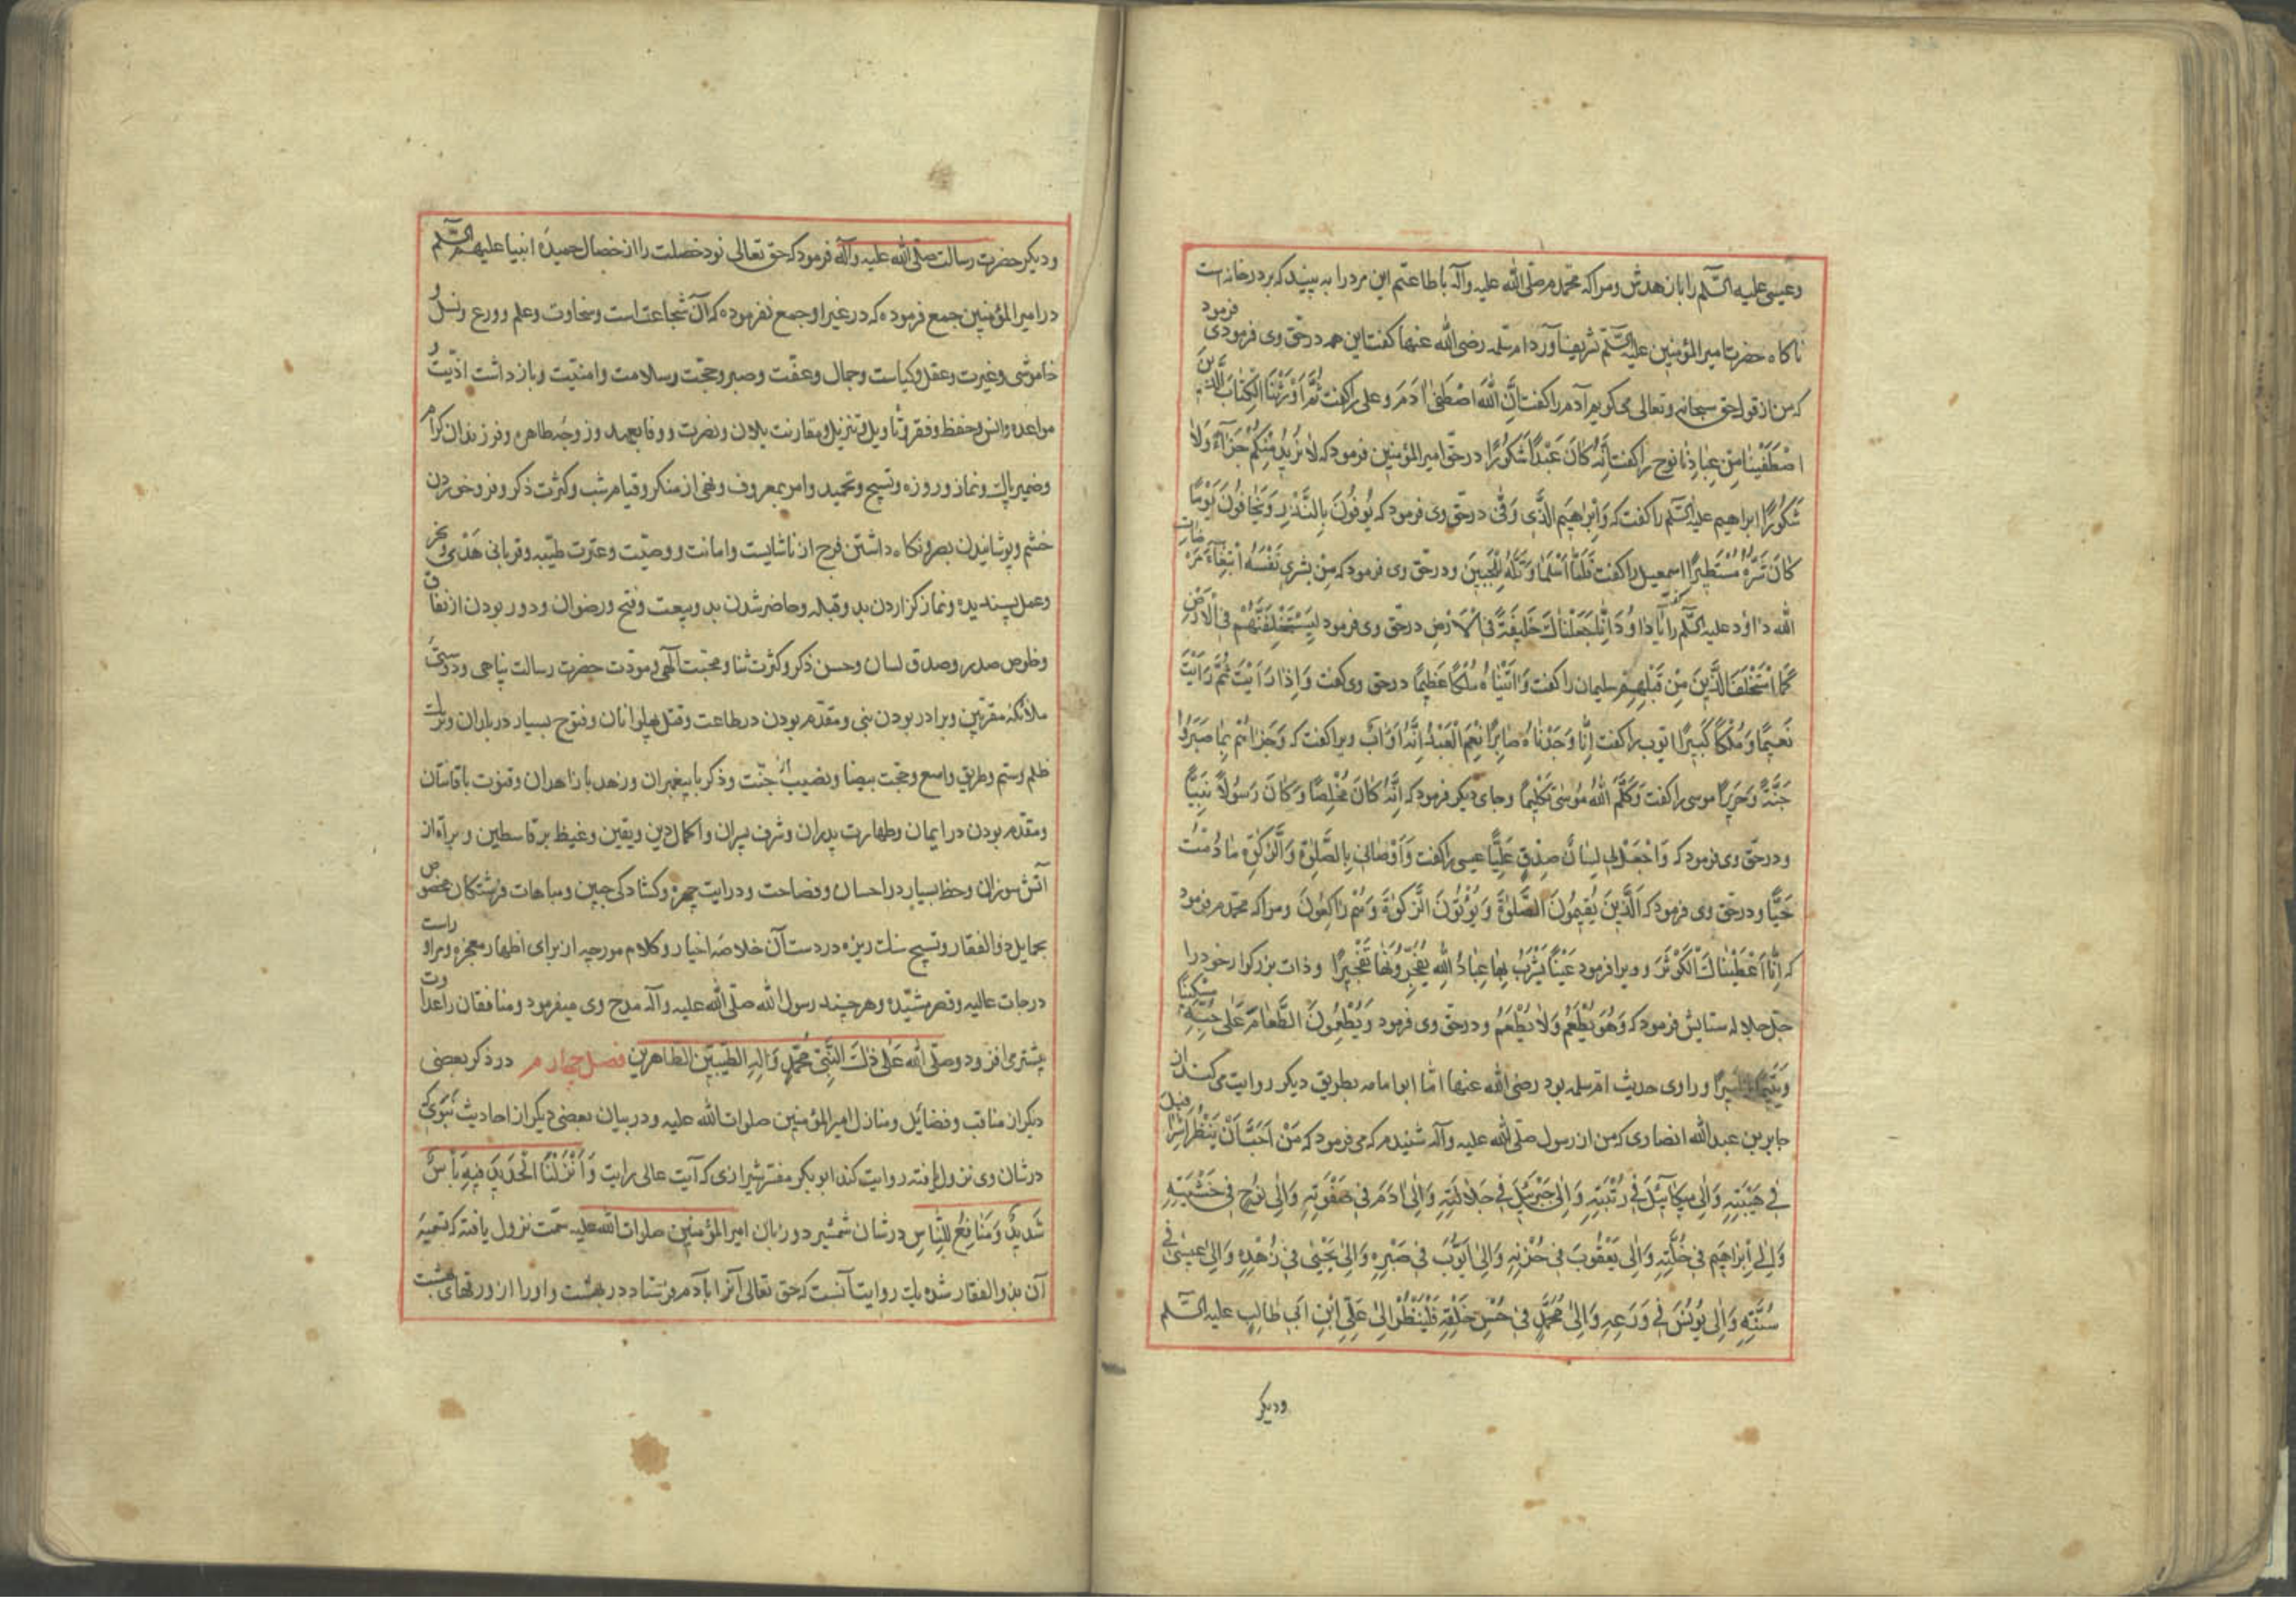 وعیسی علیه السّلم را با زهدش ومرا که محمّدم صلّی الله علیه وآله با طاعتم این مرد را به بینید که بر در خانه است
ناکاه حضرت امیرالمؤمنین علیه السّلم تشریف آورد ام سلمه رضی الله عنها کفت این همه در حقّ وی فرمودی فرمود
که من از قول حق سبحانه وتعالی می کویم آدم را کفت اِنَّ اللهَ اصْطَفیٰ اٰدَمَ وعلی را کفت ثُمَّ اَوْرَثْنَا الْکِتٰابَ الَّذینَ
اصْطَفَیْنٰا مِنْ عِبٰادِنٰا نوح را کفت اِنَّهُ کٰانَ عَبْدًا شَکُورًا در حقّ امیرالمؤمنین فرمود که لاٰ نُریدُ مِنْکُمْ جَزٰآءً وَلاٰ
شَکُورًا ابراهیم علیه السّلم را کفت که وَاِبْرٰاهیمَ الَّذی وَفّٰی در حقّ وی فرمود که یُوفُونَ بِالنَّذْرِ وَیَخٰافُونَ یَوْمًا
کٰانَ شَرُّهُ مُسْتَطیرًا اسمعیل را کفت فَلَمّٰا اَسْلَمٰا وَتَلَّهُ لِلْجَبینِ ودر حقّ وی فرمود که مَنْ یَشْری نَفْسَهُ ابْتِغٰآءَ مَرْضٰاتِ
الله داود علیه السّلم را کفت یٰا دٰاوُدَ اِنّٰا جَعَلْنٰاکَ خَلیفَةً فِی الْاَرْضِ در حقّ وی فرمود لَیَسْتَخْلِفَنَّهُمْ فِی الْاَرْضِ
کَمَا اسْتَخْلَفَ الَّذینَ مِنْ قَبْلِهِمْ سلیمان را کفت وَاٰتَیْنٰاهُ مُلْکًا عَظیمًا در حق وی کفت وَاِذٰا رَاَیْتَ ثَمَّ رَاَیْتَ
نَعیمًا وَمُلْکًا کَبیرًا ایّوب را کفت اِنّٰا وَجَدْنٰاهُ صٰابِرًا نِعْمَ الْعَبْدُ اِنَّهُ اَوّٰابٌ ویرا کفت که وَجَزٰاهُمْ بِمٰا صَبَرُوا
جَنَّةً وَحَریرًا موسی را کفت وَکَلَّمَ اللهُ مُوسیٰ تَکْلیمًا وجای دیکر فرمود که اِنَّهُ کٰانَ مُخْلِصًا وَکٰانَ رَسُولاً نَبِیًّا
ودر حقّ وی فرمود که وَاجْعَلْ لی لِسٰانَ صِدْقٍ عَلِیًّا عیسی را کفت وَاَوْصٰانی بِالصَّلٰوةِ وَالزَّکٰوةِ مٰا دُمْتُ
حَیًّا ودر حقّ وی فرمود که اَلَّذینَ یُقیمُونَ الصَّلوٰةَ وَیُؤْتُونَ الزَّکوٰةَ وَهُمْ رٰاکِعُونَ ومرا که محمّدم فرمود
که اِنّٰا اَعْطَیْنٰاکَ الْکَوْثَرَ وویرا فرمود عَیْنًا یَشْرَبُ بِهٰا عِبٰادُ اللهِ یُفَجِّرُونَهٰا تَفْجیرًا وذات بزرکوار خود را
جلّ جلاله ستایش فرمود که وَهُوَ یُطْعِمُ وَلاٰ یُطْعَمُ ودر حقّ وی فرمود وَیُطْعِمُونَ الطَّعٰامَ عَلیٰ حُبِّهِ مِسْکینًا
وَیَتیمًا وراوی حدیث امّ سلمه بود رضی الله عنها امّا ابو امامه بطریق دیکر روایت می کند از
جابر بن عبدالله انصاری که من از رسول صلّی الله علیه وآله شنیدم که می فرمود که مَنْ اَحَبَّ اَنْ یَنْظُرَ اِلیٰ اِسْرٰافیلَ
فی هَیْبَتِهِ وَاِلیٰ میکٰآئیلَ فی رُتْبَتِهِ وَاِلیٰ جَبْرَئیلَ فی جَلاٰلَتِهِ وَاِلیٰ اٰدَمَ فی صَفْوَتِهِ وَاِلیٰ نُوحٍ فی خَشْیَتِهِ
وَاِلیٰ اِبْرٰاهیمَ فی خُلَّتِهِ وَاِلیٰ یَعْقُوبَ فی حُزْنِهِ وَاِلیٰ اَیُّوبَ فی صَبْرِهِ وَاِلیٰ یَحْییٰ فی زُهْدِهِ وَاِلیٰ عیسیٰ فی
سُنَّتِهِ وَاِلیٰ یُونُسَ فی وَرَعِهِ وَاِلیٰ مُحَمَّدٍ فی حُسْنِ خَلْقِهِ فَلْیَنْظُرْ اِلیٰ عَلِیِّ ابْنِ اَبی طٰالِبٍ علیه السّلم
ودیکر
ودیکر حضرت رسالت صلّی الله علیه وآله فرمود که حق تعالی نود خصلت را از خصال حمیدهٔ انبیا علیهم السّلم
در امیرالمؤمنین جمع فرموده که در غیر او جمع نفرموده که آن شجاعت است وسخاوت وعلم وورع ونسل و
خاموشی وغیرت وعقل وکیاست وجمال وعفّت وصبر وحجّت وسلامت وامنیّت وباز داشت اذیّت و
مواعده وانس وحفظ وفقر وتأویل وتنزیل ومقارنت یلان ونصرت ووفا بعهد وزوجهٔ طاهره وفرزندان کرام
وضمیر پاک ونماز وروزه وتسبیح وتحمید وامر بمعروف ونهی از منکر وقیام شب وکثرت ذکر وفرو خوردن
خشم وپوشانیدن بصر ونکاه داشتن فرج از ناشایست وامانت ووصیّت وعترت طیّبه وقربانی هَدْی ونحر
وعمل پسندیده ونماز کزاردن بدو قبله وحاضر شدن بدو بیعت وفتح ورضوان ودور بودن از نفاق
وخلوص صدر وصدق لسان وحسن ذکر وکثرت ثنا ومحبّت آلهی ومودّت حضرت رسالت پناهی ودوستیّ
ملائکهٔ مقرّبین وبرادر بودن نبی ومقدّم بودن در طاعت وقتل پهلوانان وفتوح بسیار در بلدان وترک
ظلم وستم وطریق واسع وحجّت بیضا ونصیب جنّت وذکر با پیغمبران وزهد با زاهدان وقنوت با قانتان
ومقدّم بودن در ایمان وطهارت پدران وشرف پسران واکمال دین ویقین وغیظ بر قاسطین وبرآة از
آتش سوزان وحظ بسیار در احسان وفصاحت ودرایت چهره وکشادکی جبین ومباهات فرشتکان مخصوص
بحمایل ذوالفقار وتسبیح سنک ریزه در دست آن خلاصهٔ اخیار وکلام مورچه از برای اظهار معجزه ومر او راست
درجات عالیه وقصر مشیّده وهرچند رسول الله صلّی الله علیه وآله مدح وی میفرمود ومنافقان را عداوت
بیشتر می افزود وصلّی اللهُ عَلیٰ ذٰلِکَ النَّبِیِّ مُحَمَّدٍ وَاٰلِهِ الطَّیِّبینَ الطّاهرین فصل چهارم در ذکر بعضی
دیکر از مناقب وفضائل ومنازل امیرالمؤمنین صلوات الله علیه ودر بیان بعضی دیکر از احادیث نبوی که
در شان وی نزول یافته روایت کند ابو بکر مفسّر شیرازی که آیت عالی رایت وَاَنْزَلْنَا الْحَدیدَ فیهِ بَأْسٌ
شَدیدٌ وَمَنٰافِعُ لِلنّٰاسِ در شان شمشیر دو زبان امیرالمؤمنین صلوات الله علیه سمّت نزول یافته که تسمیهٔ
آن بذوالفقار شده یک روایت آنست که حق تعالی آنرا با آدم فرستاد در بهشت واو را از ورقهای بهشت